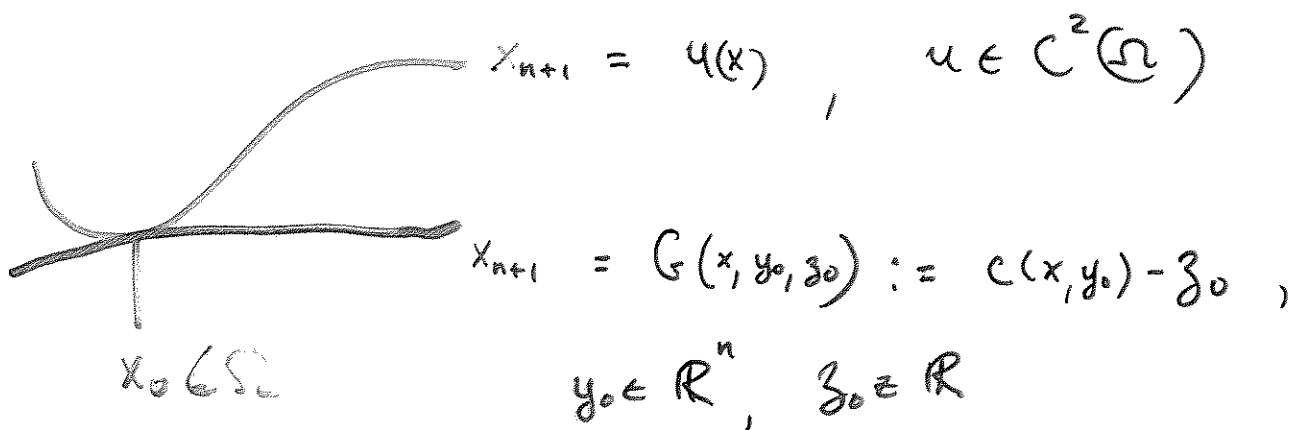 x_{n+1} = u(x) , u ∈ C²(Ω)
x_{n+1} = G(x, y₀, z₀) := c(x, y₀) - z₀ ,
x₀ ∈ Ω
y₀ ∈ ℝⁿ , z₀ ∈ ℝ